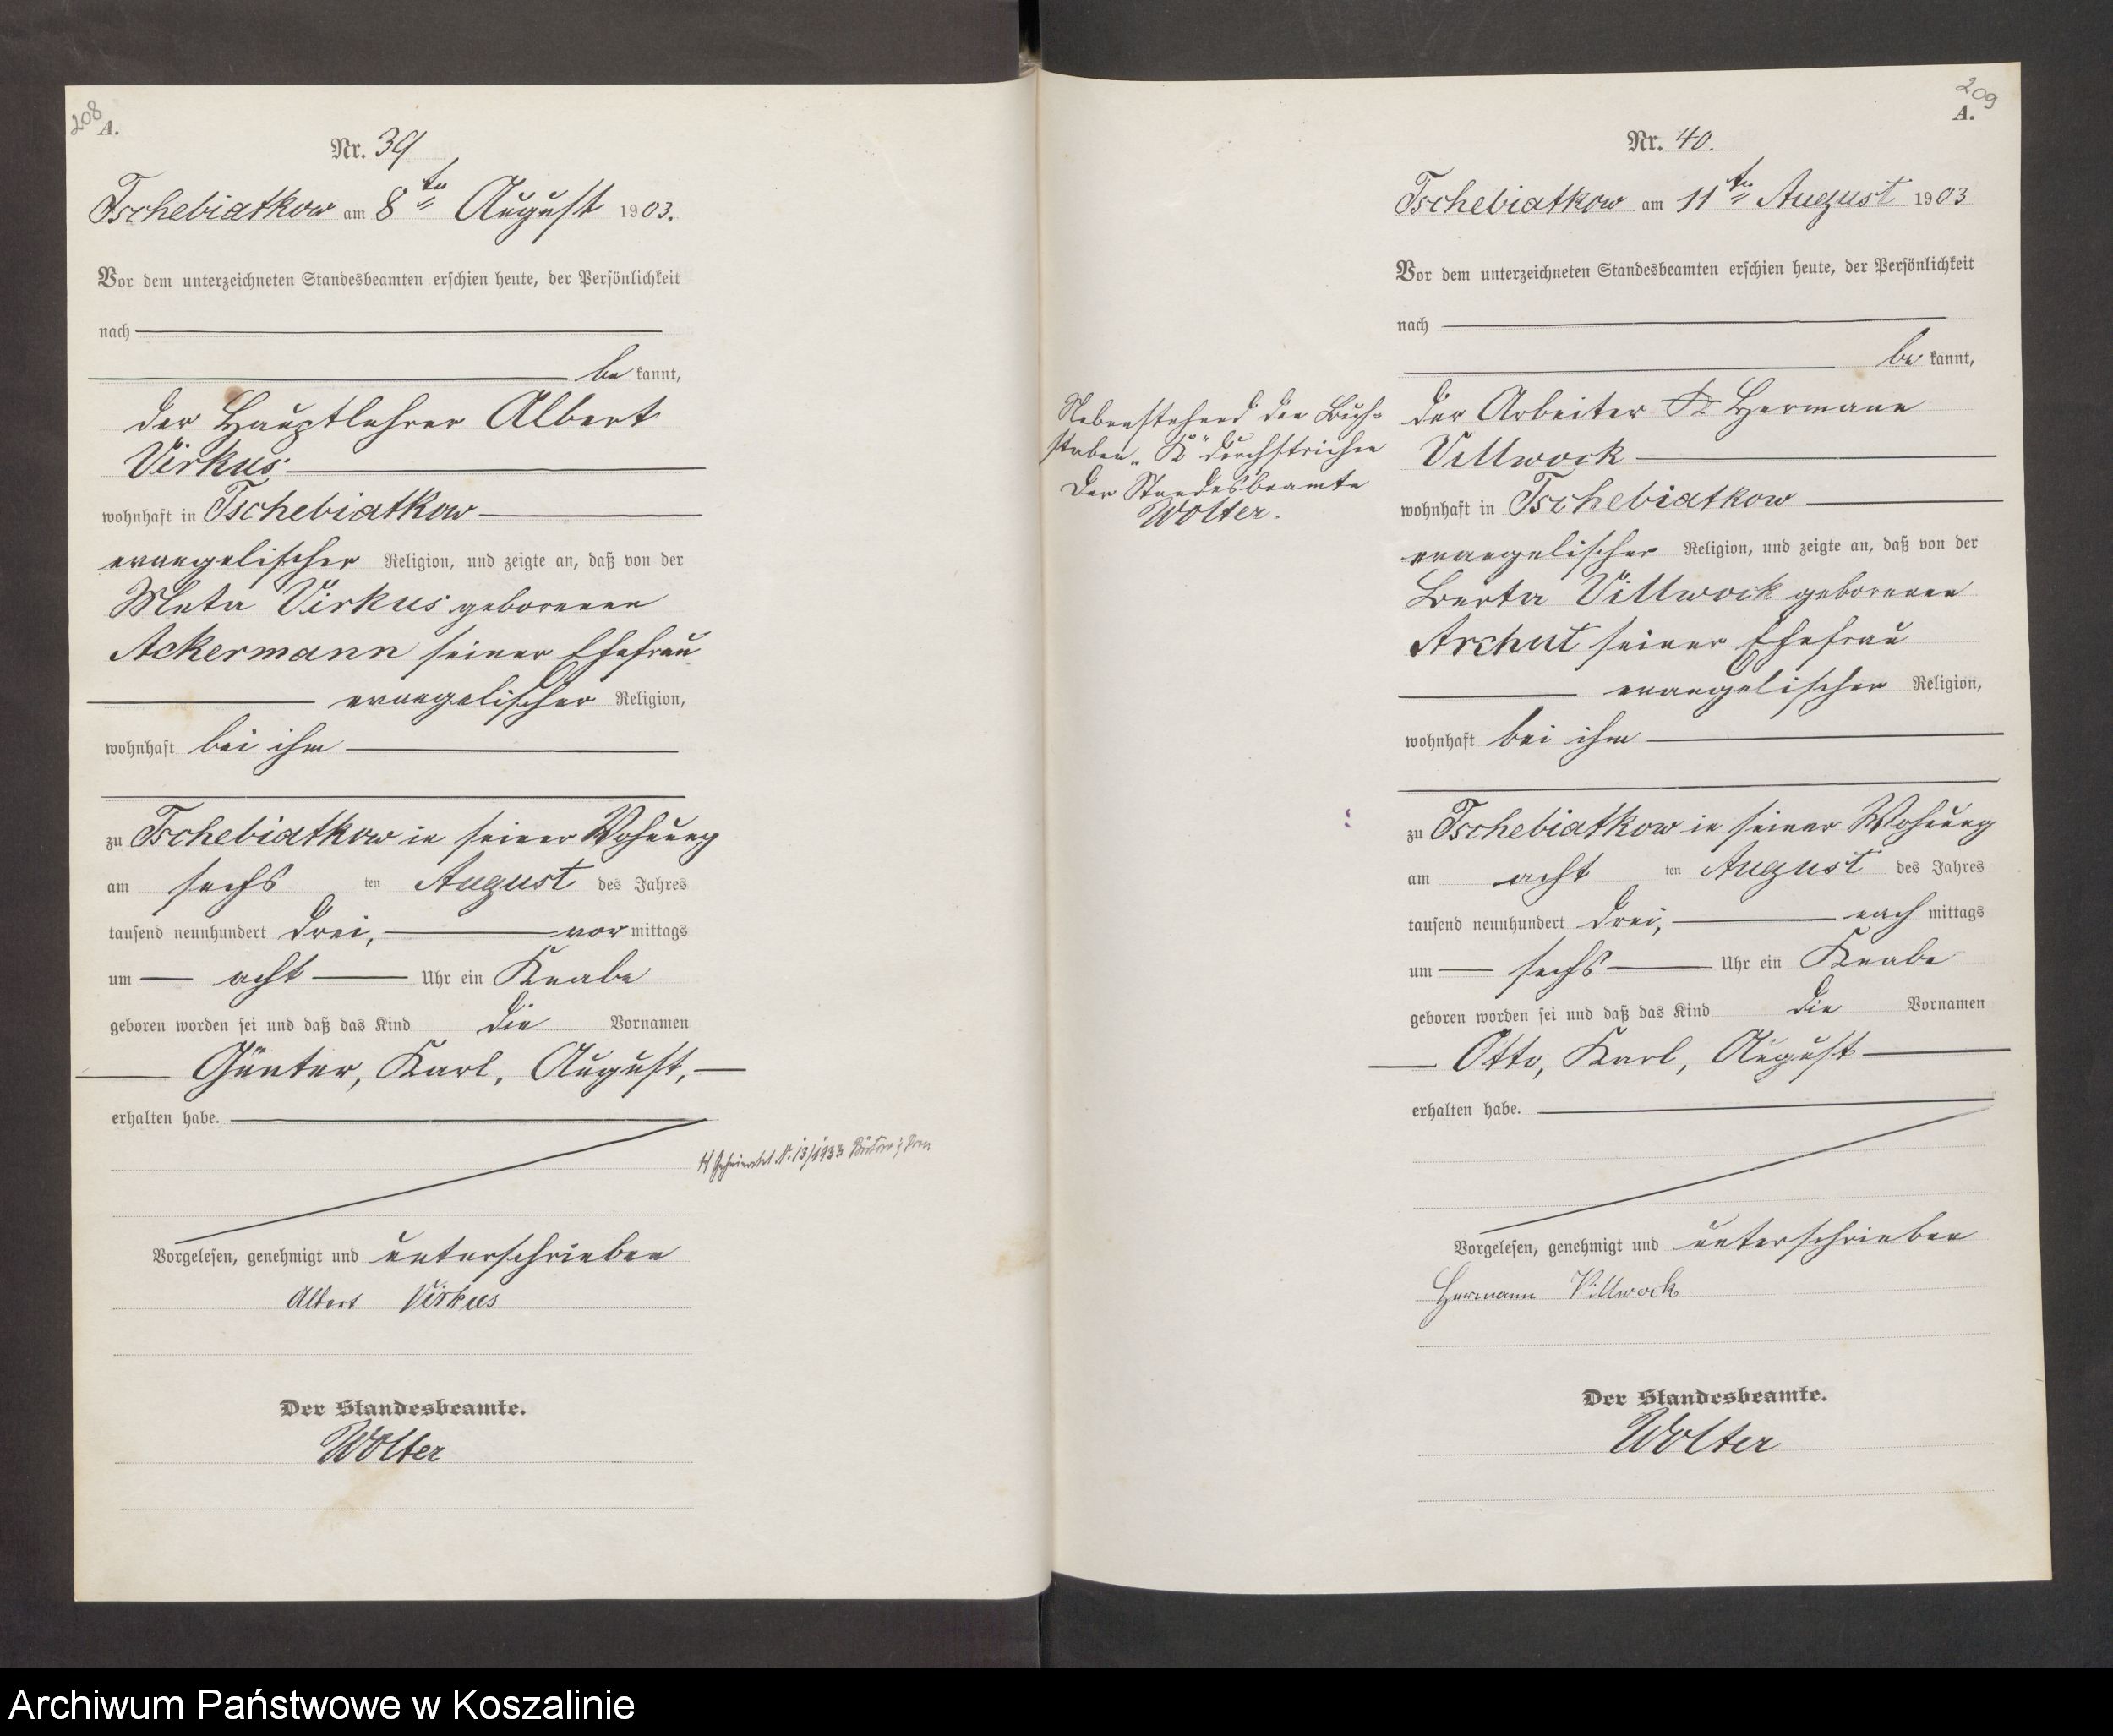 208
A.
Nr. 39
Tschebiatkow am 8ten August 1903.
Vor dem unterzeichneten Standesbeamten erschien heute, der Persönlichkeit
nach
be kannt,
der Hauptlehrer Albert
Virkus
wohnhaft in Tschebiatkow
evangelischer Religion, und zeigte an, daß von der
Meta Virkus geborenen
Ackermann seiner Ehefrau
evangelischer Religion,
wohnhaft bei ihm
zu Tschebiatkow in seiner Wohnung
am sechs ten August des Jahres
tausend neunhundert drei, vor mittags
um acht Uhr ein Knabe
geboren worden sei und daß das Kind die Vornamen
Günter, Karl, August,
erhalten habe.
Nr. 13/1933
Vorgelesen, genehmigt und unterschrieben
Albert Virkus
Der Standesbeamte.
Wolter
209
A.
Nr. 40.
Tschebiatkow am 11ten August 1903
Vor dem unterzeichneten Standesbeamten erschien heute, der Persönlichkeit
nach
be kannt,
Nebenstehend den Buch-
staben „K“ durchstrichen
Der Standesbeamte
Wolter.
der Arbeiter K Hermann
Villwock
wohnhaft in Tschebiatkow
evangelischer Religion, und zeigte an, daß von der
Berta Villwock geborenen
Archut seiner Ehefrau
evangelischer Religion,
wohnhaft bei ihm
zu Tschebiatkow in seiner Wohnung
am acht ten August des Jahres
tausend neunhundert drei, nach mittags
um sechs Uhr ein Knabe
geboren worden sei und daß das Kind die Vornamen
Otto, Karl, August
erhalten habe.
Vorgelesen, genehmigt und unterschrieben
Hermann Villwock
Der Standesbeamte.
Wolter
Archiwum Państwowe w Koszalinie